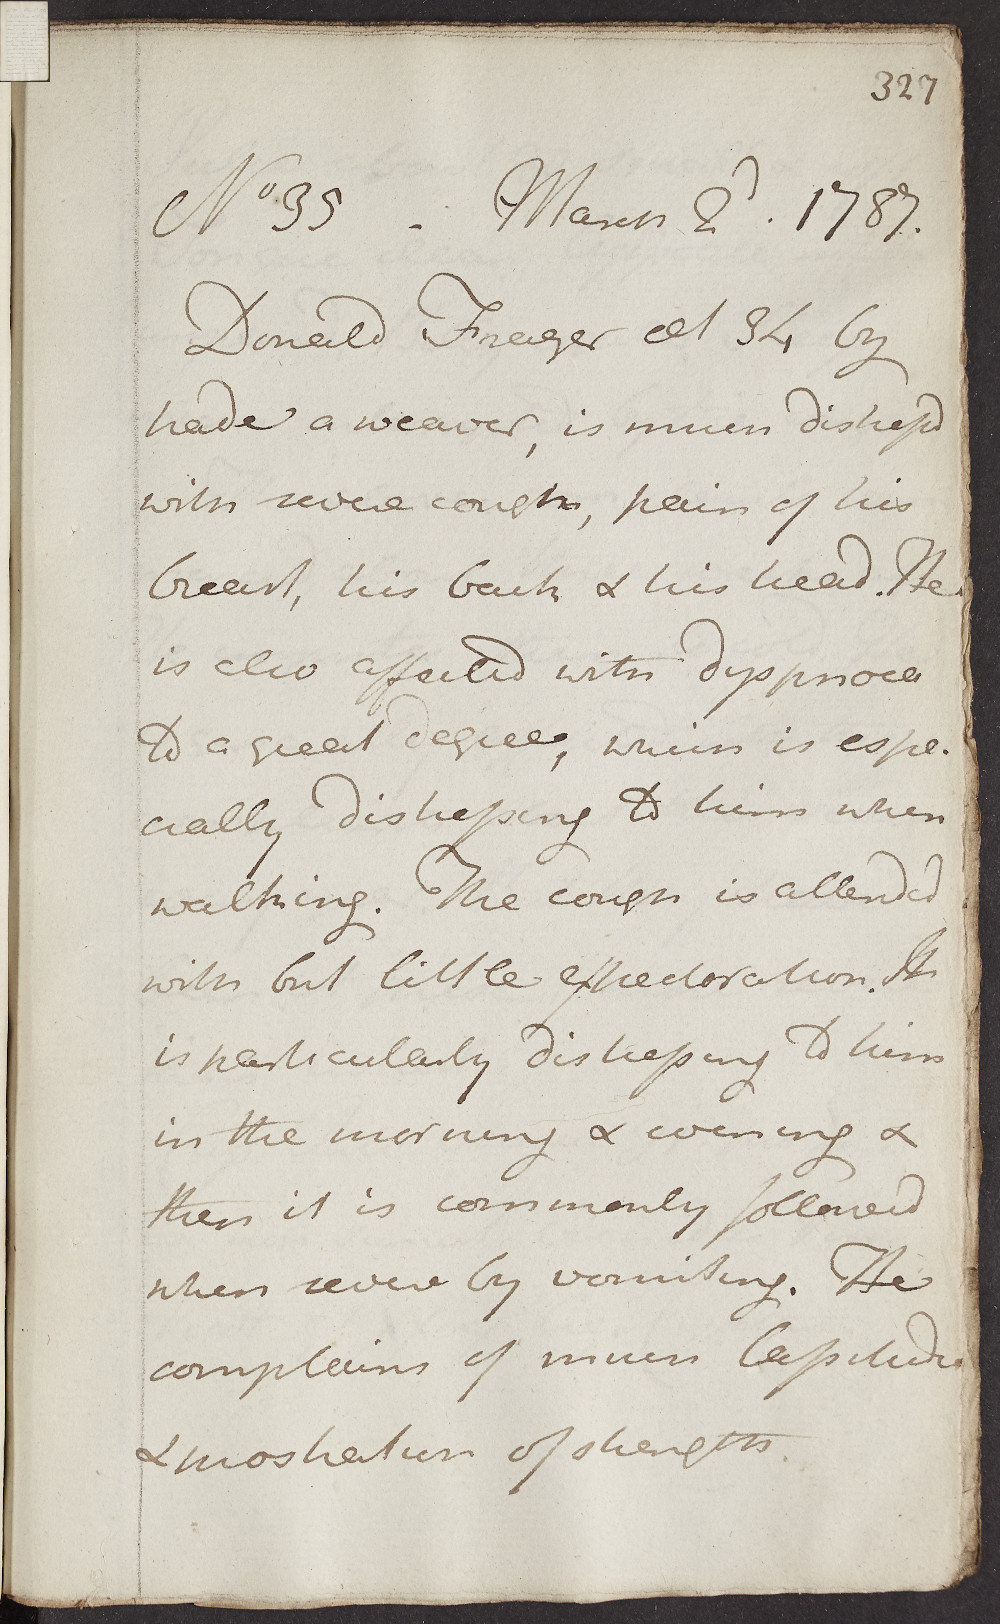 327
No 35 - March 2d. 1787.
Donald Frazer aet 34 by
trade a weaver, is much distressd
with severe cough, pain of his
breast, his back & his head. He
is also affected with dyspnoea
to a great degree, which is espe-
cially distressing to him when
walking. The cough is attended
with but little expectoration. It
is particularly distressing to him
in the morning & evening &
then it is commonly followed
when severe by vomiting. He
complains of much lassitude
& prostration of strength.